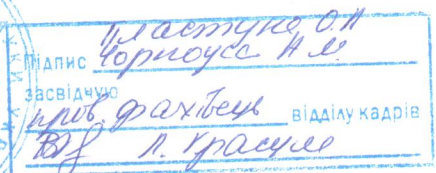 Пластуна О.П
Підпис Чорноуса А.М.
засвідчую
пров. фахівець відділу кадрів
Л. Красуля